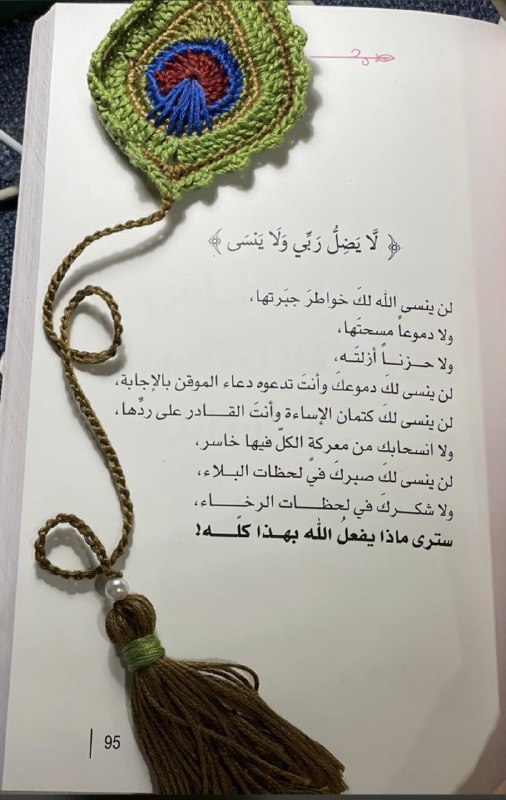 ﴿ لَّا يَضِلُّ رَبِّي وَلَا يَنْسَى ﴾
لن ينسى الله لكَ خواطرَ جبَرتها،
ولا دموعاً مسحتَها،
ولا حــزنــاً أزلتَــه،
لن ينسى لكَ دموعكَ وأنتَ تدعوه دعاء الموقن بالإجابة،
لن ينسى لكَ كتمان الإساءة وأنتَ القــادر على ردِّها،
ولا انسحابك من معركةٍ الكلّ فيها خاسر،
لن ينسى لكَ صبركَ في لحظات البــلاء،
ولا شكــركَ في لحظــات الرخــاء،
سترى ماذا يفعلُ الله بهــذا كلّــه!
95